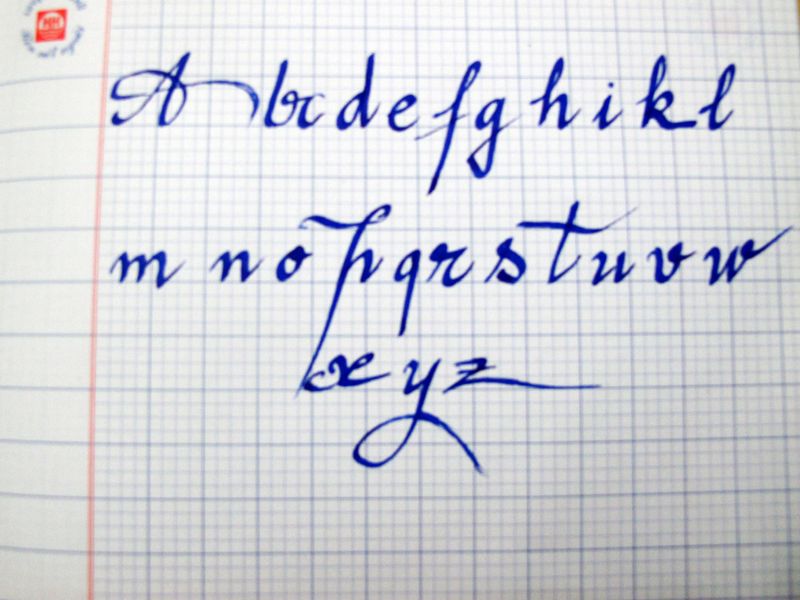 HH
A b c d e f g h i k l
m n o p q r s t u v w
x y z